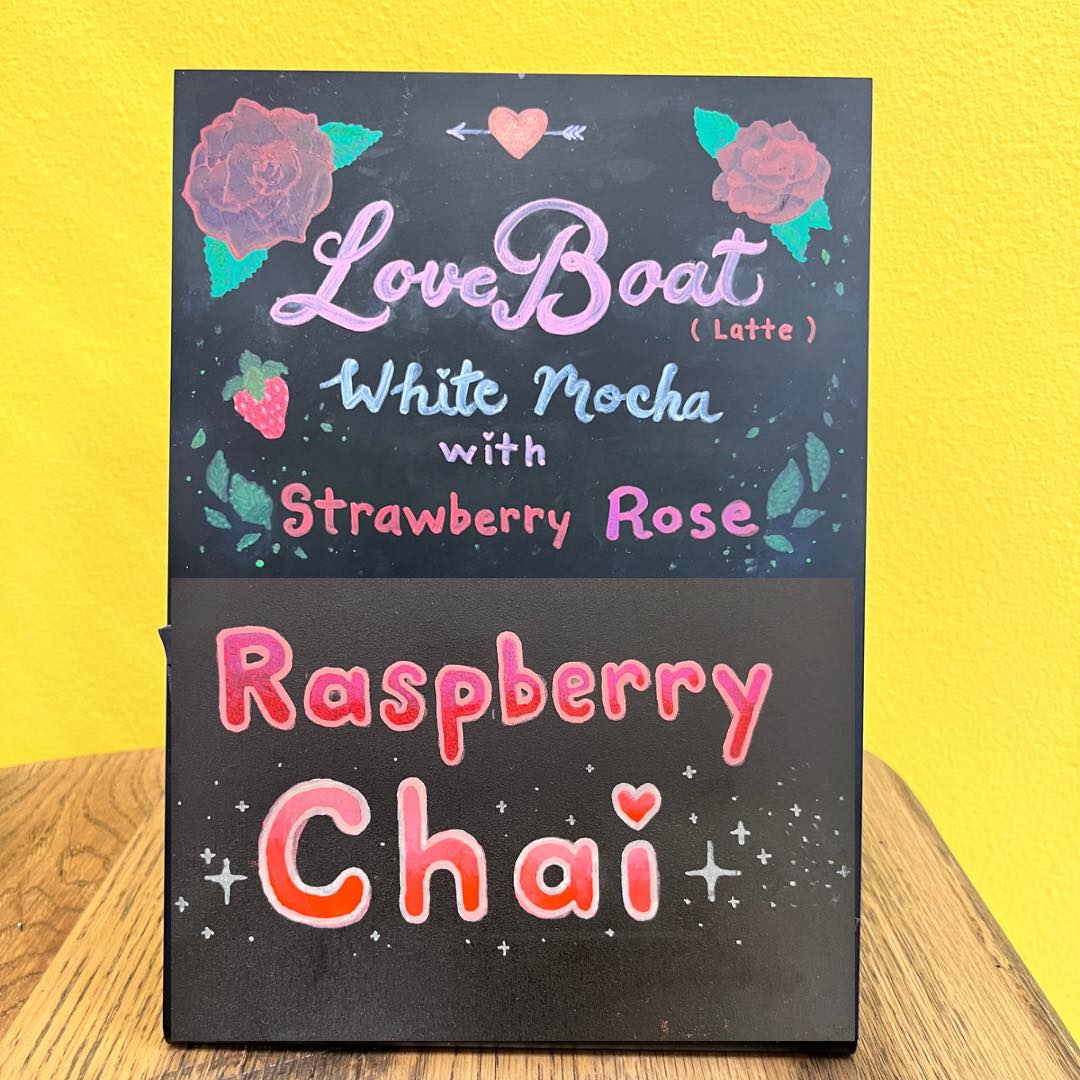 Love Boat
( Latte )
White Mocha
with
Strawberry Rose
Raspberry
Chai